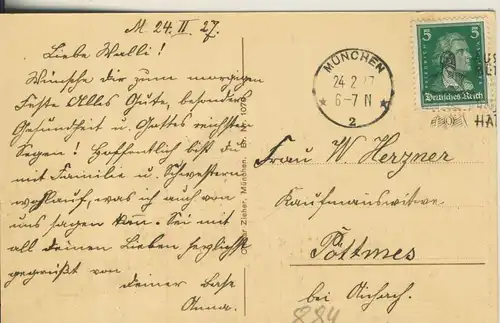 M 24. II. 27.
Liebe Walli!
Wünsche dir zum morgigen
Feste Alles Gute, besonders
Gesundheit u. Gottes reichsten
Segen! Hoffentlich bist du
mit Familie u. Schwestern
wohlauf, was ich auch von
uns sagen kann. Sei mit
all deinen Lieben herzlichst
gegrüßt von
deiner Base
Anna.
Ottmar Zieher, München. Br. Nr. 1079
MÜNCHEN
24. 2. 27
6-7 N
2
5 5
Deutsches Reich
HAT
Frau W Herzner
Kaufmannswitwe
Pöttmes
bei Aichach.
884